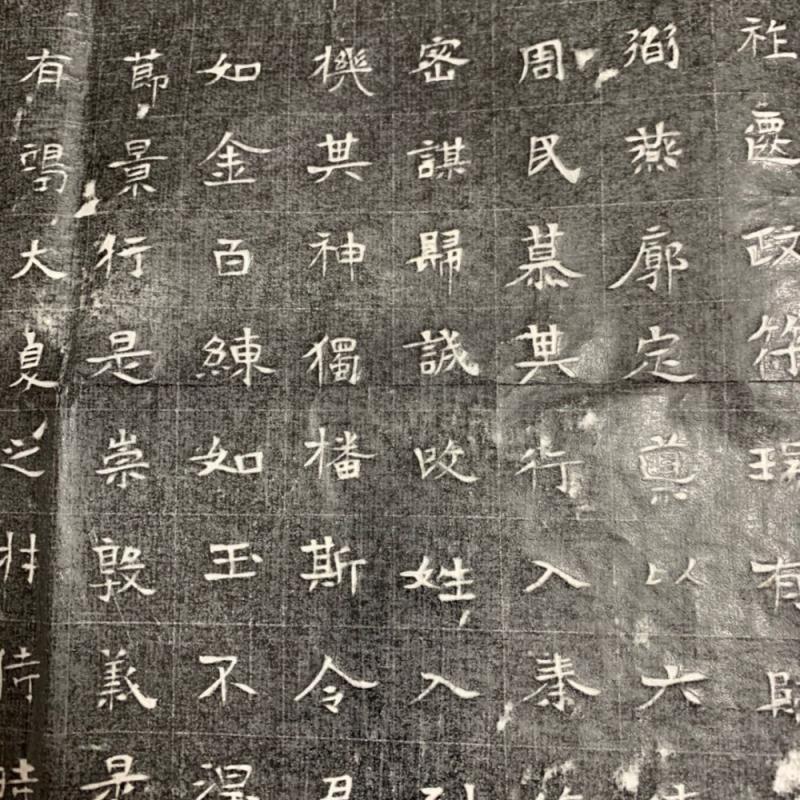 祚遷政符瑞有
弼燕廓定冀以六
周民慕其行入秦
密謀歸誠改姓入
機其神獨播斯令君
如金百練如玉不涅
節景行是崇敦義是
有大夏之材時